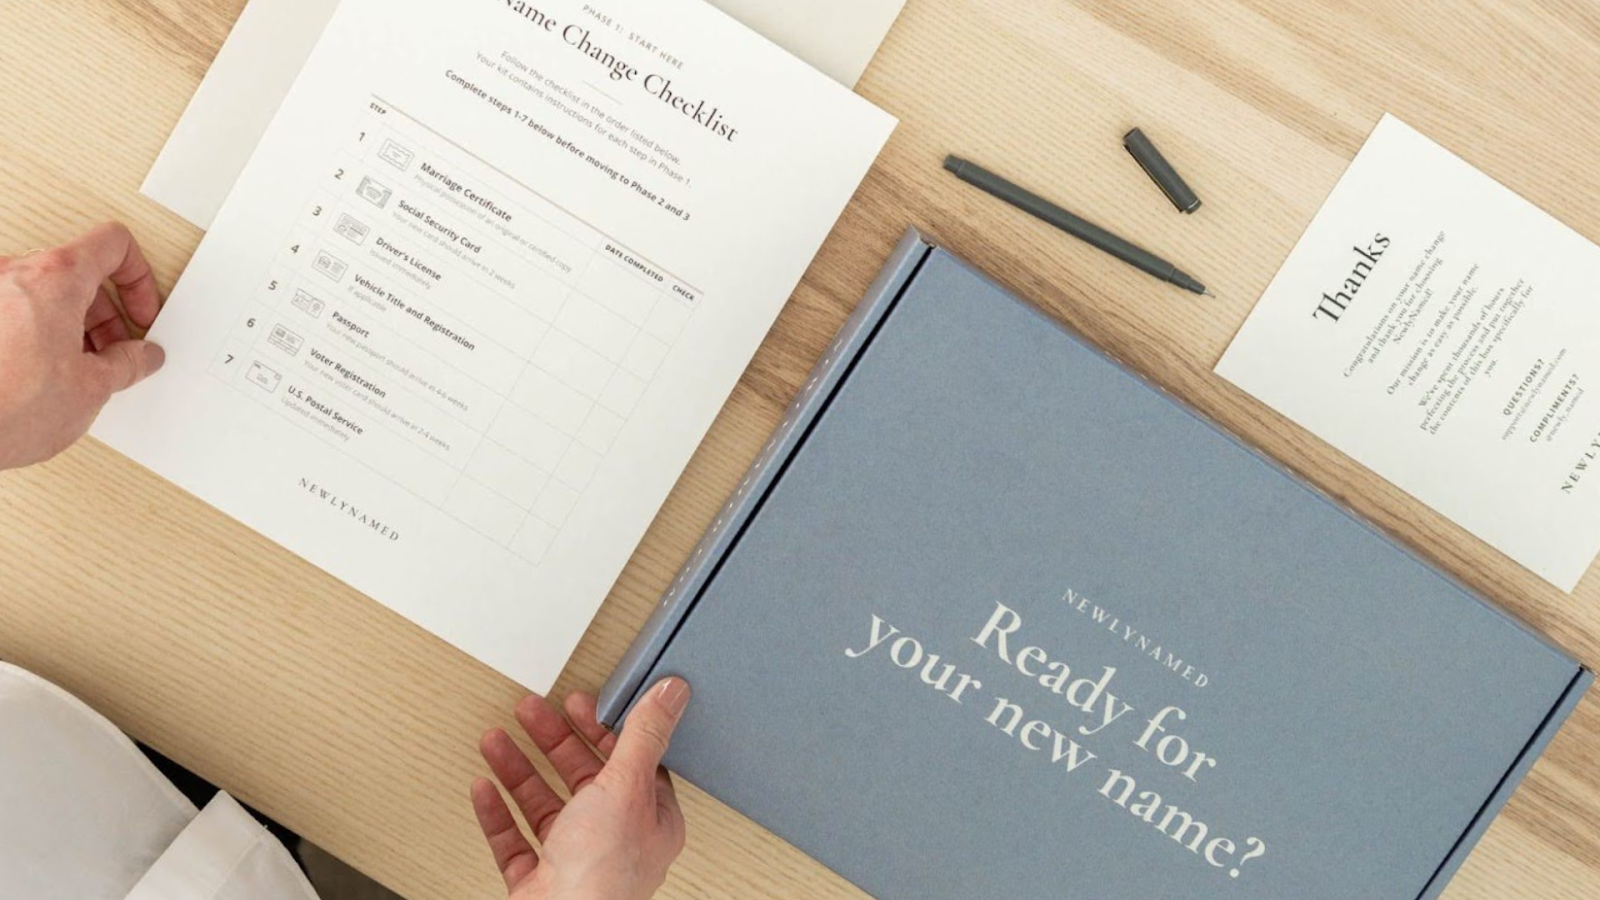 PHASE 1: START HERE
Name Change Checklist
Follow the checklist in the order listed below.
Your kit contains instructions for each step in Phase 1.
Complete steps 1-7 below before moving to Phase 2 and 3
STEP
DATE COMPLETED
CHECK
1
Marriage Certificate
Physical possession of an original or certified copy
2
Social Security Card
Your new card should arrive in 2 weeks
3
Driver's License
Issued immediately
4
Vehicle Title and Registration
If applicable
5
Passport
Your new passport should arrive in 4-6 weeks
6
Voter Registration
Your new voter card should arrive in 2-4 weeks
7
U.S. Postal Service
Updated immediately
NEWLYNAMED
NEWLYNAMED
Ready for
your new name?
Thanks
Congratulations on your name change
and thank you for choosing
NewlyNamed!
Our mission is to make your name
change as easy as possible.
We've spent thousands of hours
perfecting the process and put together
the contents of this box specifically for
you.
QUESTIONS?
support@newlynamed.com
COMPLIMENTS?
@newly_named